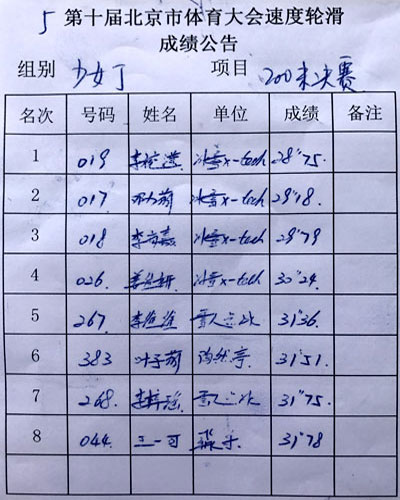 5 第十届北京市体育大会速度轮滑
成绩公告
组别 少女丁 项目 200米决赛
名次 号码 姓名 单位 成绩 备注
1 019 冰雪x-tech 28"75
2 017 冰雪x-tech 29"18
3 018 冰雪x-tech 29"79
4 026 冰雪x-tech 30"24
5 267 31"36
6 383 叶子萌 陶然亭 31"51
7 268 31"75
8 044 王一可 31"78